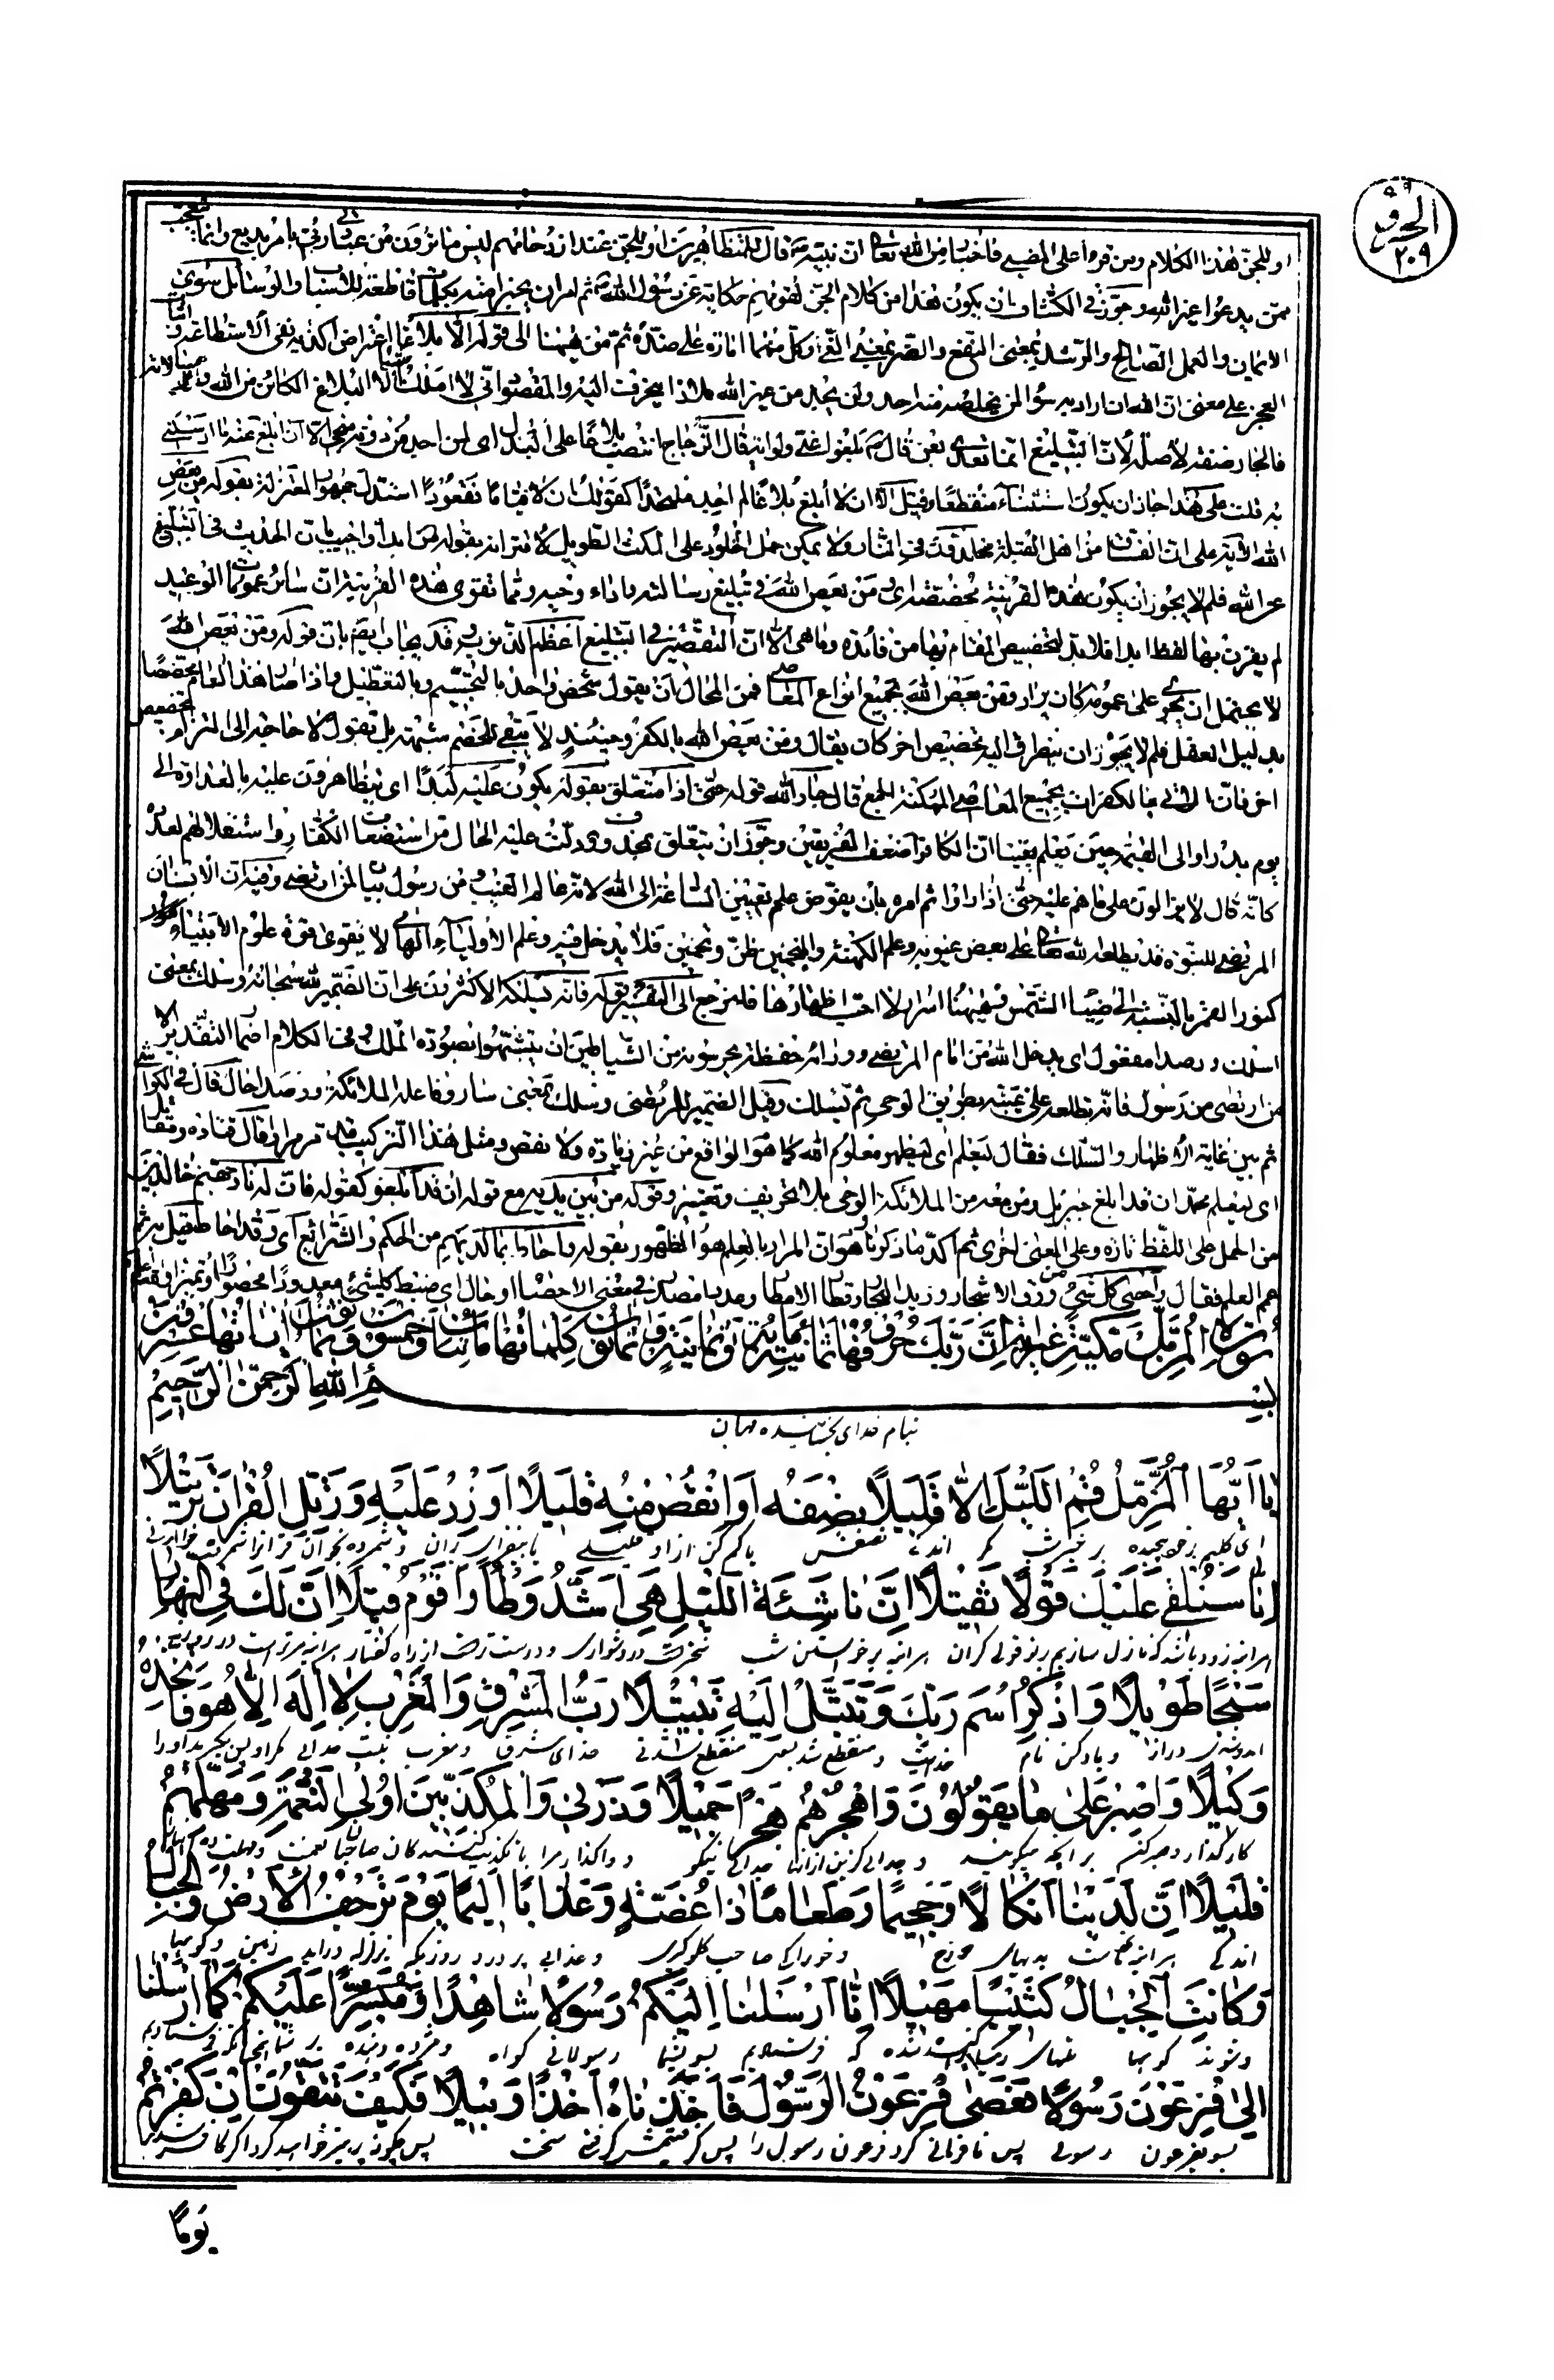 الجزو ٢٩
٢٠٩
او للجن لهذا الكلام ومن قرء على المضي فاخبار من الله تعالى ان نبيه قال للمتظاهرين او للجن عند ازدحامهم ليس ما ترون من عبادتي بامر بديع وانما يتعجب
ممن يدعوا غير الله وجوز في الكشاف ان يكون هذا من كلام الجن لقومهم حكاية عن رسول الله ثم امر ان يخبر امته بكلمات قاطعة للاسباب والوسائل سوى
الايمان والعمل الصالح والرشد بمعنى النفع والضر بمعنى الغي وكل منهما امارة على ضده ثم من ههنا الى قوله الا بلاغا اعتراض اكد به نفي الاستطاعة واثبات
العجز على معنى ان الله ان اراد به سؤا لن يخلصه منه احد ولن يجد من غير الله ملاذا ينحرف اليه والمقصود اني لا املك شيئا الا البلاغ الكائن من الله ورسالاته
فالجار صفة لا صلة لان التبليغ انما تعدى بعن قال بلغوا عني ولو اية قال الزجاج انتصب بلاغا على البدل اي لن اجد من دونه منجى الا ان ابلغ عنه ما ارسلني
به قلت على هذا جاز ان يكون استثناء منقطعا وقيل الا ان لا ابلغ بلاغا لم اجد ملتحدا كقولك ان لا قياما فقعودا استدل جمهور المعتزلة بقوله ومن يعص
الله الاية على ان الفساق من اهل القبلة مخلدون في النار ولا يمكن حمل الخلود على المكث الطويل لاقترانه بقوله ابدا واجيب بان الحديث في التبليغ
عن الله فلم لا يجوز ان يكون هذه القرينة مخصصة اي ومن يعص الله في تبليغ رسالته واداء وحيه ومما تقوى هذه القرينة ان سائر عمومات الوعيد
لم يقرن بها لفظ ابدا فلا بد لتخصيص المقام بها من فائدة وما هي الا ان التقصير في التبليغ اعظم الذنوب وقد يجاب ايضا بان قوله ومن يعص الله
لا يحتمل ان يجرى على عمومه كان يراد ومن يعص الله بجميع انواع المعاصي فمن المحال ان يقول شخص واحد بالتجسيم وبالتعطيل واذا صار هذا العام مخصصا
بدليل العقل فلم لا يجوز ان يتطرق اليه تخصيص اخر كان يقال ومن يعص الله بالكفر وحينئذ لا يبقى للخصم شبهة بل نقول لا حاجة الى التزام تخصيص
اخر فان الاتي بالكفر ات بجميع المعاصي الممكنة الجمع قال جار الله قوله حتى اذا متعلق بقوله يكونون عليه لبدا اي يتظاهرون عليه بالعداوة الى
يوم بدر او الى القيمة حين يعلم يقينا ان الكافر اضعف الفريقين وجوز ان يتعلق بمحذوف دلت عليه الحال من استضعاف الكفار واستقلالهم لعدده
كانه قال لا يزالون على ما هم عليه حتى اذا راوا ثم امره بان يفوض علم تعيين الساعة الى الله لانه عالم الغيب من رسول بيان لمن ارتضى وفيه ان الانسان
المرتضى للنبوة قد يطلعه الله تعالى على بعض غيوبه وعلم الكهنة والمنجمين ظن وتخمين فلا يدخل فيه وعلم الاولياء الهامي لا يقوى قوة علوم الانبياء كنور
كنور القمر بالنسبة الى ضياء الشمس وههنا اسرار لا احب اظهارها فلنرجع الى التفسير قوله فانه يسلكه الاكثرون على ان الضمير لله سبحانه وسلك بمعنى
اسلك ورصدا مفعول اي يدخل الله من امام المرتضى وورائه حفظة يحرسونه من الشياطين ان يتشبهوا بصورة الملك وفي الكلام اضمار التقدير الا
من ارتضى من رسول فانه يطلعه على غيبه بطريق الوحي ثم يسلك وقيل الضمير للمرتضى وسلك بمعنى سار وفاعله الملائكة ورصدا حال قال في الكواشي
ثم بين غاية الاظهار والسلك فقال ليعلم اي ليظهر معلوم الله كما هو الواقع من غير زيادة ولا نقص ومثل هذا التركيب قد مر مرارا قال قتادة ومقاتل
اي ليعلم محمد ان قد ابلغ جبريل ومن معه من الملائكة الوحي بلا تحريف وتغيير وقوله من بين يديه مع قوله ان قد ابلغوا كقوله فان له نار جهنم خالدين
من الحمل على اللفظ تارة وعلى المعنى اخرى ثم اكد ما ذكرنا وهو ان المراد بالعلم هو الظهور بقوله واحاط بما لديهم من الحكم والشرائع اي وقد احاط قبل به ثم
عمم العلم فقال واحصى كل شيء من ورق الاشجار وزبد البحار وقطر الامطار وعددا مصدر في معنى الاحصاء او حال اي ضبط كل شيء معدودا محصورا او تميز والله اعلم
سورة المزمل مكية غير اية ان ربك حروفها ثمانمائة وثمانية وثلاثون كلماتها مائتان وخمس وثمانون اياتها عشرون
بِسْمِ اللهِ الرَّحْمٰنِ الرَّحِيْمِ
بنام خداى بخشاينده مهربان
يا اَيُّهَا الْمُزَّمِّلُ قُمِ اللَّيْلَ اِلَّا قَلِيلًا نِصْفَهُ اَوِ انْقُصْ مِنْهُ قَلِيلًا اَوْ زِدْ عَلَيْهِ وَرَتِّلِ الْقُرْانَ تَرْتِيلًا
اى گليم برخود پيچيده برخيز شب مگر اندكى نصفش يا كم كن از او قليلى يا بيفزاى بران و شمرده بخوان قرانرا شمرده خواندنى
اِنَّا سَنُلْقِي عَلَيْكَ قَوْلًا ثَقِيلًا اِنَّ نَاشِئَةَ اللَّيْلِ هِيَ اَشَدُّ وَطْأً وَاَقْوَمُ قِيلًا اِنَّ لَكَ فِي النَّهَارِ
بدرستيكه زود باشد كه نازل سازيم بر تو قولى گران بدرستيكه برخواستن شب سخت‌تر است در دشوارى و درست‌تر است از راه گفتار بدرستيكه مر تراست در روز
سَبْحًا طَوِيلًا وَاذْكُرِ اسْمَ رَبِّكَ وَتَبَتَّلْ اِلَيْهِ تَبْتِيلًا رَبُّ الْمَشْرِقِ وَالْمَغْرِبِ لَا اِلٰهَ اِلَّا هُوَ فَاتَّخِذْهُ
امدوشدى دراز و ياد كن نام خدايت و منقطع شو بسوى منقطع شدنى خداى مشرق و مغرب نيست خدائى مگر او پس بگير او را
وَكِيلًا وَاصْبِرْ عَلٰى مَا يَقُولُونَ وَاهْجُرْهُمْ هَجْرًا جَمِيلًا وَذَرْنِي وَالْمُكَذِّبِينَ اُولِي النَّعْمَةِ وَمَهِّلْهُمْ
كارگذار و صبر كن بر انچه ميگويند و جدائى گزين از انها جدائى نيكو و واگذار مرا با تكذيب كنندگان صاحبان نعمت و مهلت ده
قَلِيلًا اِنَّ لَدَيْنَا اَنْكَالًا وَجَحِيمًا وَطَعَامًا ذَا غُصَّةٍ وَعَذَابًا اَلِيمًا يَوْمَ تَرْجُفُ الْاَرْضُ وَالْجِبَالُ
اندكى بدرستيكه نزد ماست بندهاى و دوزخ و خوراكى صاحب گلوگيرى و عذابى پر درد روزيكه بزلزله درايد زمين و كوهها
وَكَانَتِ الْجِبَالُ كَثِيبًا مَهِيلًا اِنَّا اَرْسَلْنَا اِلَيْكُمْ رَسُولًا شَاهِدًا وَمُبَشِّرًا عَلَيْكُمْ كَمَا اَرْسَلْنَا
و شوند كوهها تلهاى ريگ كه فرستاديم بسوى شما رسولانى گواه و مژده دهنده بر شما همچنانكه فرستاديم
اِلٰى فِرْعَوْنَ رَسُولًا فَعَصٰى فِرْعَوْنُ الرَّسُولَ فَاَخَذْنَاهُ اَخْذًا وَبِيلًا فَكَيْفَ تَتَّقُونَ اِنْ كَفَرْتُمْ
بسوى فرعون رسولى پس نافرمانى كرد فرعون رسول را پس گرفتيمش گرفتنى سخت پس چگونه پرهيز خواهيد كرد اگر كافر شديد
يَوْمًا